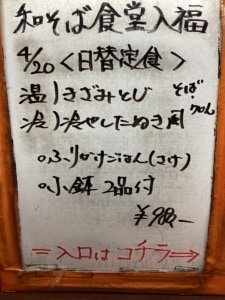 和そば食堂入福
4/20 <日替定食>
温)きざみとじ
冷)冷やしたぬき
そば・うどん
○ふりかけごはん(さけ)
○小鉢 2品付
¥980-
=入口はコチラ⇒